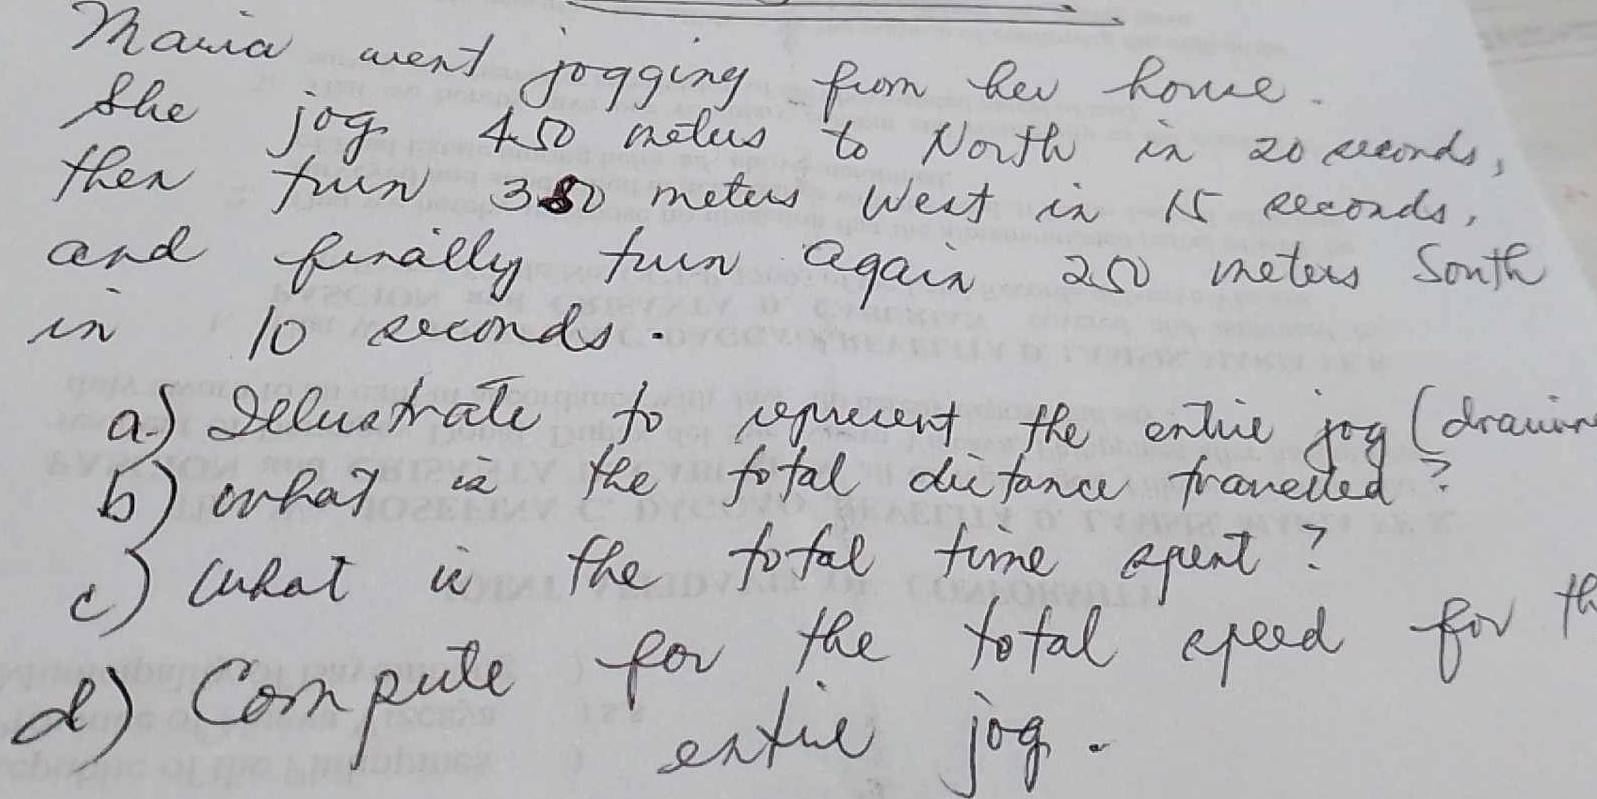 Maria went jogging from her house.
She jog 450 meters to North in 20 seconds,
then turn meters West in 15 seconds,
and finally turn again 250 meters South
in 10 seconds.
a.) Illustrate to represent the entire jog (drawin
b) what is the total distance travelled?
c) What is the total time spent?
d) Compute for the total speed for th
entire jog.